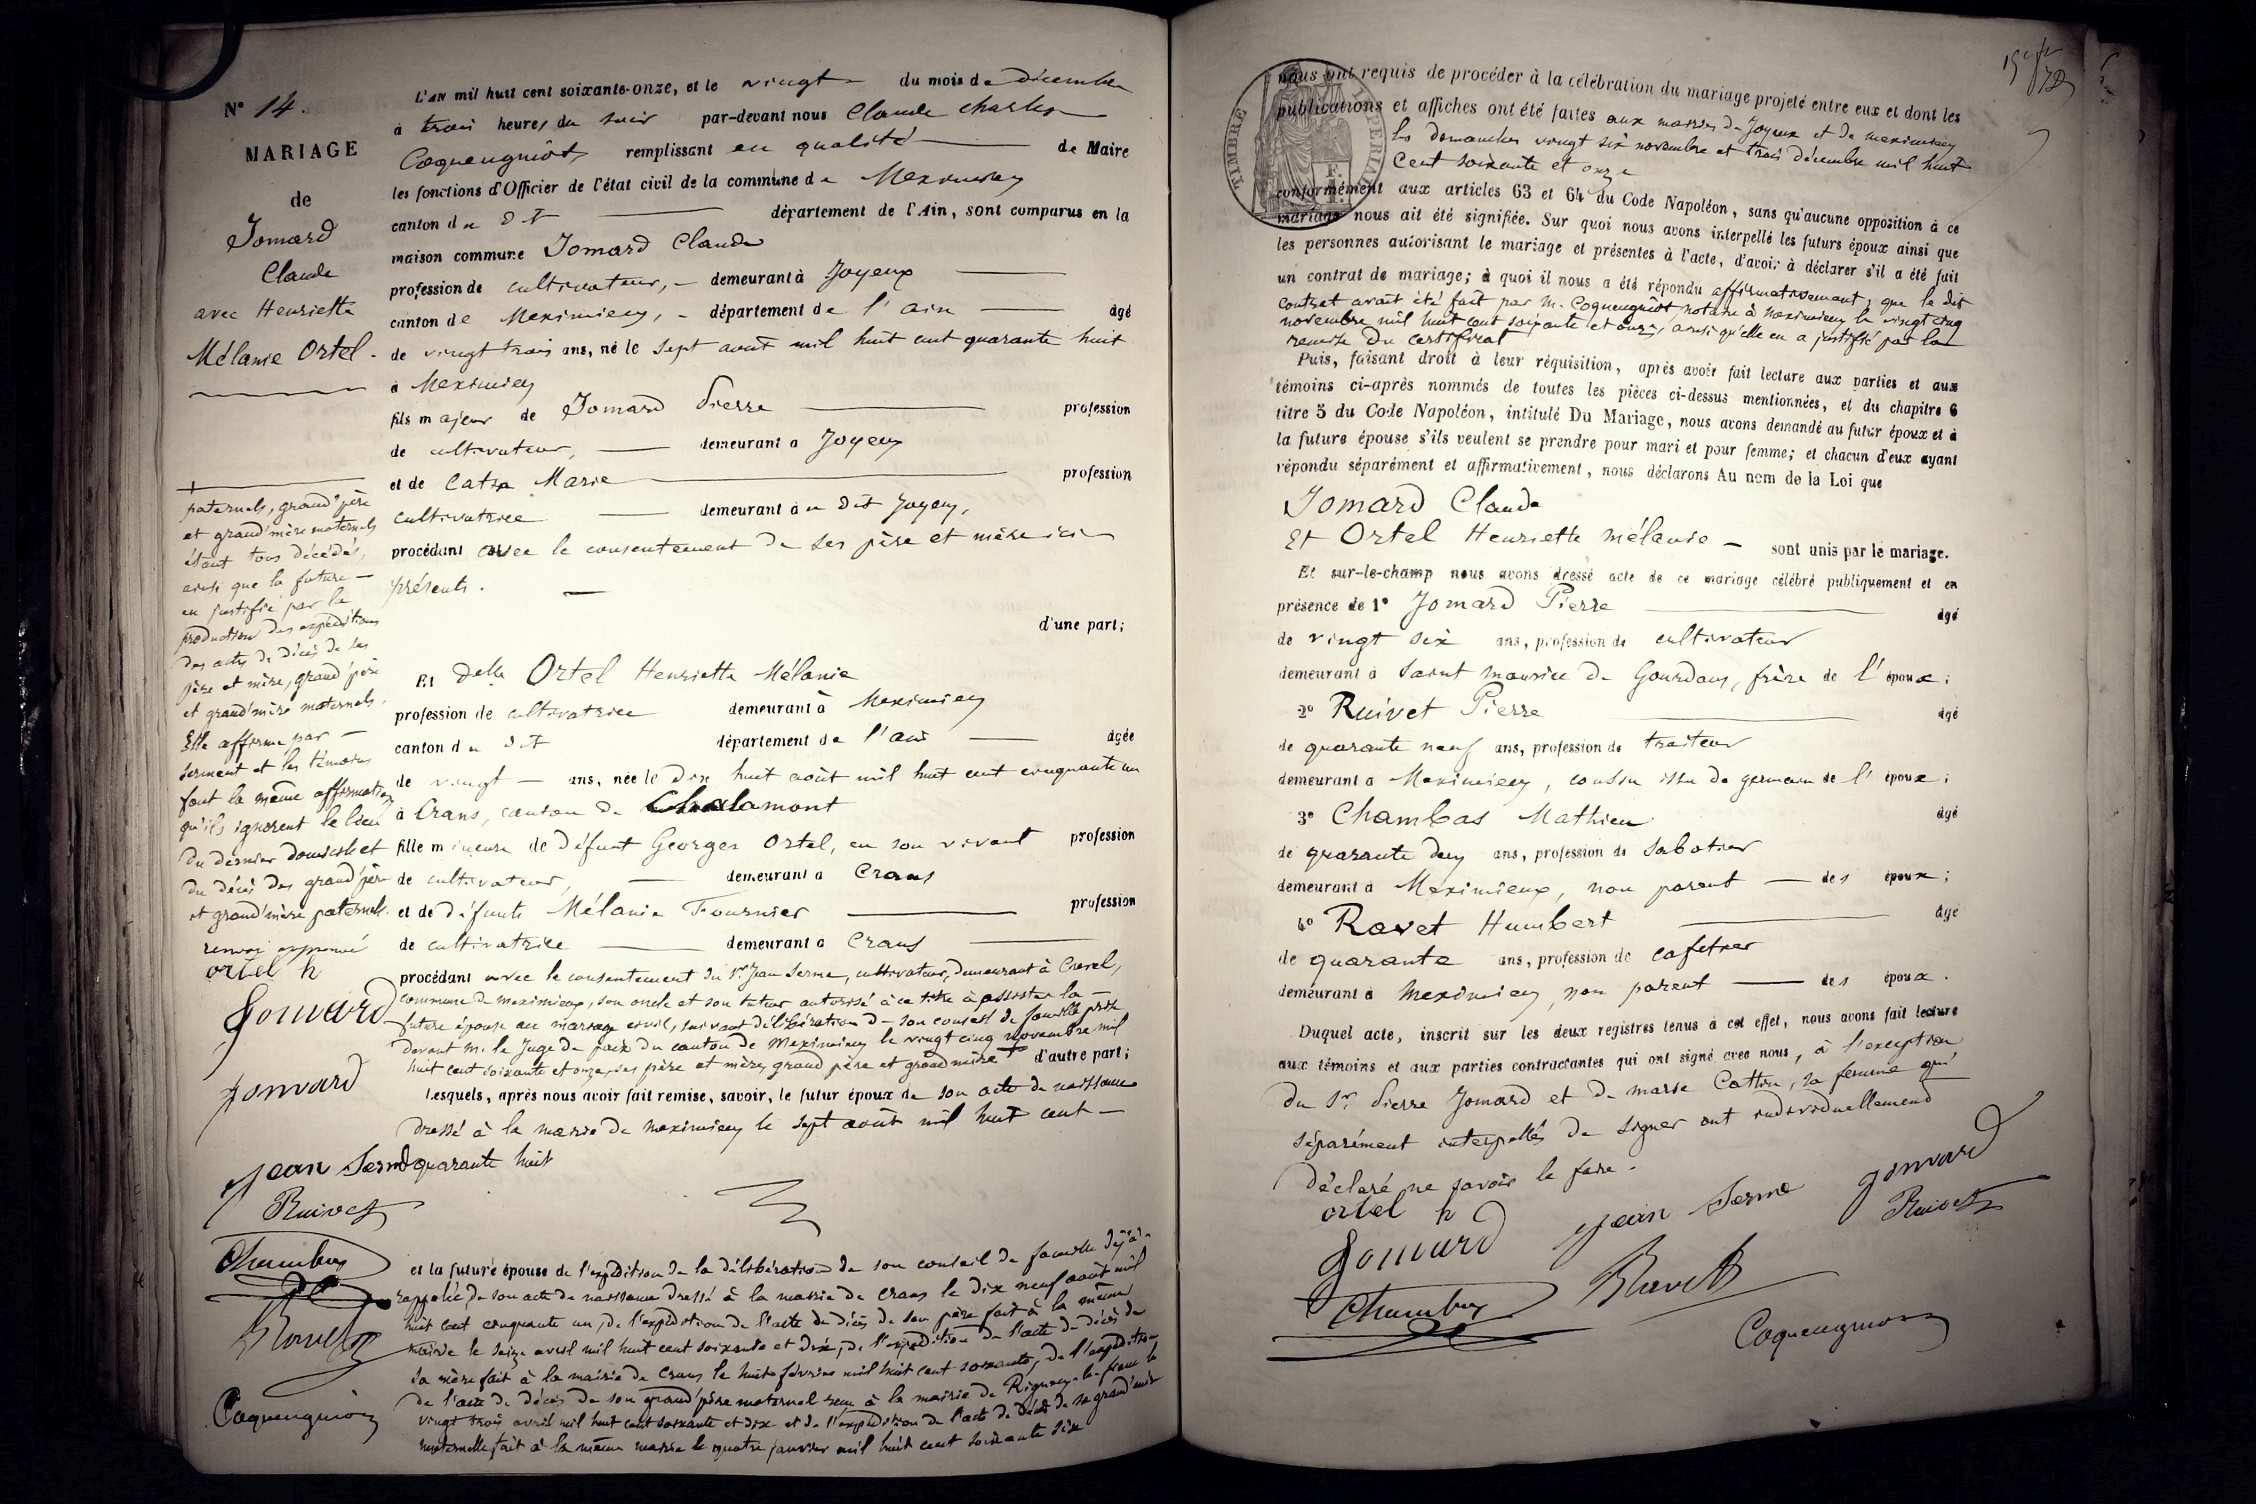 N° 14.
MARIAGE
de
Jomard
Claude
avec Henriette
Mélanie Ortel.
L'AN mil huit cent soixante-onze, et le vingt du mois de décembre
à trois heures du soir par-devant nous Claude Charles
Coqueugniot remplissant en qualité de Maire
les fonctions d'Officier de l'état civil de la commune de Meximieux
canton du dt département de l'Ain, sont comparus en la
maison commune Jomard Claude
profession de cultivateur, demeurant à Joyeux
canton de Meximieux, département de l'ain âgé
de vingt trois ans, né le sept août mil huit cent quarante huit
à Meximieux
fils majeur de Jomard Pierre profession
de cultivateur, demeurant à Joyeux
et de Catin Marie profession
cultivatrice demeurant à u dit Joyeux,
procédant avec le consentement de ses père et mère ici
présents.
d'une part;
Et delle Ortel Henriette Mélanie
profession de cultivatrice demeurant à Meximieux
canton du dt département de l'ain âgée
de vingt ans, née le dix huit août mil huit cent cinquante un
à Crans, canton de Chalamont
fille mineure de défunt Georges Ortel, en son vivant profession
de cultivateur, demeurant à Crans
et de défunte Mélanie Fournier profession
de cultivatrice demeurant à Crans
procédant avec le consentement du sr Jean Serme, cultivateur, demeurant à
commune de Meximieux, son oncle et son tuteur autorisé à ce titre à assister la
future épouse au mariage civil, suivant délibération de son conseil de famille prise
devant M. le Juge de paix du canton de Meximieux le vingt cinq novembre mil
huit cent soixante et onze, ses père et mère, grand père et grand'mère d'autre part;
paternels, grand'père
et grand'mère maternels
étant tous décédés,
ainsi que la future
en justifie par la
production des expéditions
des actes de décès de ses
père et mère, grand'père
et grand'mère maternels.
Elle affirme par
serment et les témoins
font la même affirmation
qu'ils ignorent le lieu
du dernier domicile et
du décès des grand'père
et grand'mère paternels.
renvoi approuvé
ortel h
Jomard
Jomard
Jean Serme
Ruivet
Chambas
Ravet
Coqueugniot
Lesquels, après nous avoir fait remise, savoir, le futur époux de son acte de naissance
dressé à la mairie de Meximieux le sept août mil huit cent
quarante huit
et la future épouse de l'expédition de la délibération de son conseil de famille déjà
rappelée, de son acte de naissance dressé à la mairie de Crans le dix neuf août mil
huit cent cinquante un, de l'expédition de l'acte de décès de son père fait à la même
mairie le seize avril mil huit cent soixante et dix, de l'expédition de l'acte de décès de
sa mère fait à la mairie de Crans le huit février mil huit cent soixante, de l'expédition
de l'acte de décès de son grand'père maternel reçu à la mairie de Rignieux-le-franc le
vingt trois avril mil huit cent soixante et dix et de l'expédition de l'acte de décès de sa grand'mère
maternelle fait à la même mairie le quatre janvier mil huit cent soixante six
TIMBRE IMPERIAL
nous ont requis de procéder à la célébration du mariage projeté entre eux et dont les
publications et affiches ont été faites aux mairies de Joyeux et de Meximieux
les dimanches vingt six novembre et trois décembre mil huit
Cent soixante et onze
conformément aux articles 63 et 64 du Code Napoléon, sans qu'aucune opposition à ce
mariage nous ait été signifiée. Sur quoi nous avons interpellé les futurs époux ainsi que
les personnes autorisant le mariage et présentes à l'acte, d'avoir à déclarer s'il a été fait
un contrat de mariage; à quoi il nous a été répondu affirmativement; que le dit
contrat avait été fait par M. Coqueugniot, notaire à Meximieux le vingt cinq
novembre mil huit cent soixante et onze, ainsi qu'elle en a justifié par la
remise du certificat
Puis, faisant droit à leur réquisition, après avoir fait lecture aux parties et aux
témoins ci-après nommés de toutes les pièces ci-dessus mentionnées, et du chapitre 6
titre 5 du Code Napoléon, intitulé Du Mariage, nous avons demandé au futur époux et à
la future épouse s'ils veulent se prendre pour mari et pour femme; et chacun d'eux ayant
répondu séparément et affirmativement, nous déclarons Au nom de la Loi que
Jomard Claude
Et Ortel Henriette Mélanie sont unis par le mariage.
Et sur-le-champ nous avons dressé acte de ce mariage célébré publiquement et en
présence de 1° Jomard Pierre âgé
de vingt six ans, profession de cultivateur
demeurant à Saint Maurice de Gourdans, frère de l'époux;
2° Ruivet Pierre âgé
de quarante neuf ans, profession de traiteur
demeurant à Meximieux, cousin issu de germain de l'époux;
3° Chambas Mathieu âgé
de quarante deux ans, profession de sabotier
demeurant à Meximieux, non parent des époux;
4° Ravet Humbert âgé
de quarante ans, profession de cafetier
demeurant à Meximieux, non parent des époux.
Duquel acte, inscrit sur les deux registres tenus à cet effet, nous avons fait lecture
aux témoins et aux parties contractantes qui ont signé avec nous, à l'exception
du Sr. Pierre Jomard et de Marie Cattin, sa femme qui
séparément interpellés de signer ont individuellement
déclaré ne savoir le faire.
ortel h
Jean Serme
Jomard
Ruivet
Jomard
Chambas
Ravet
Coqueugniot